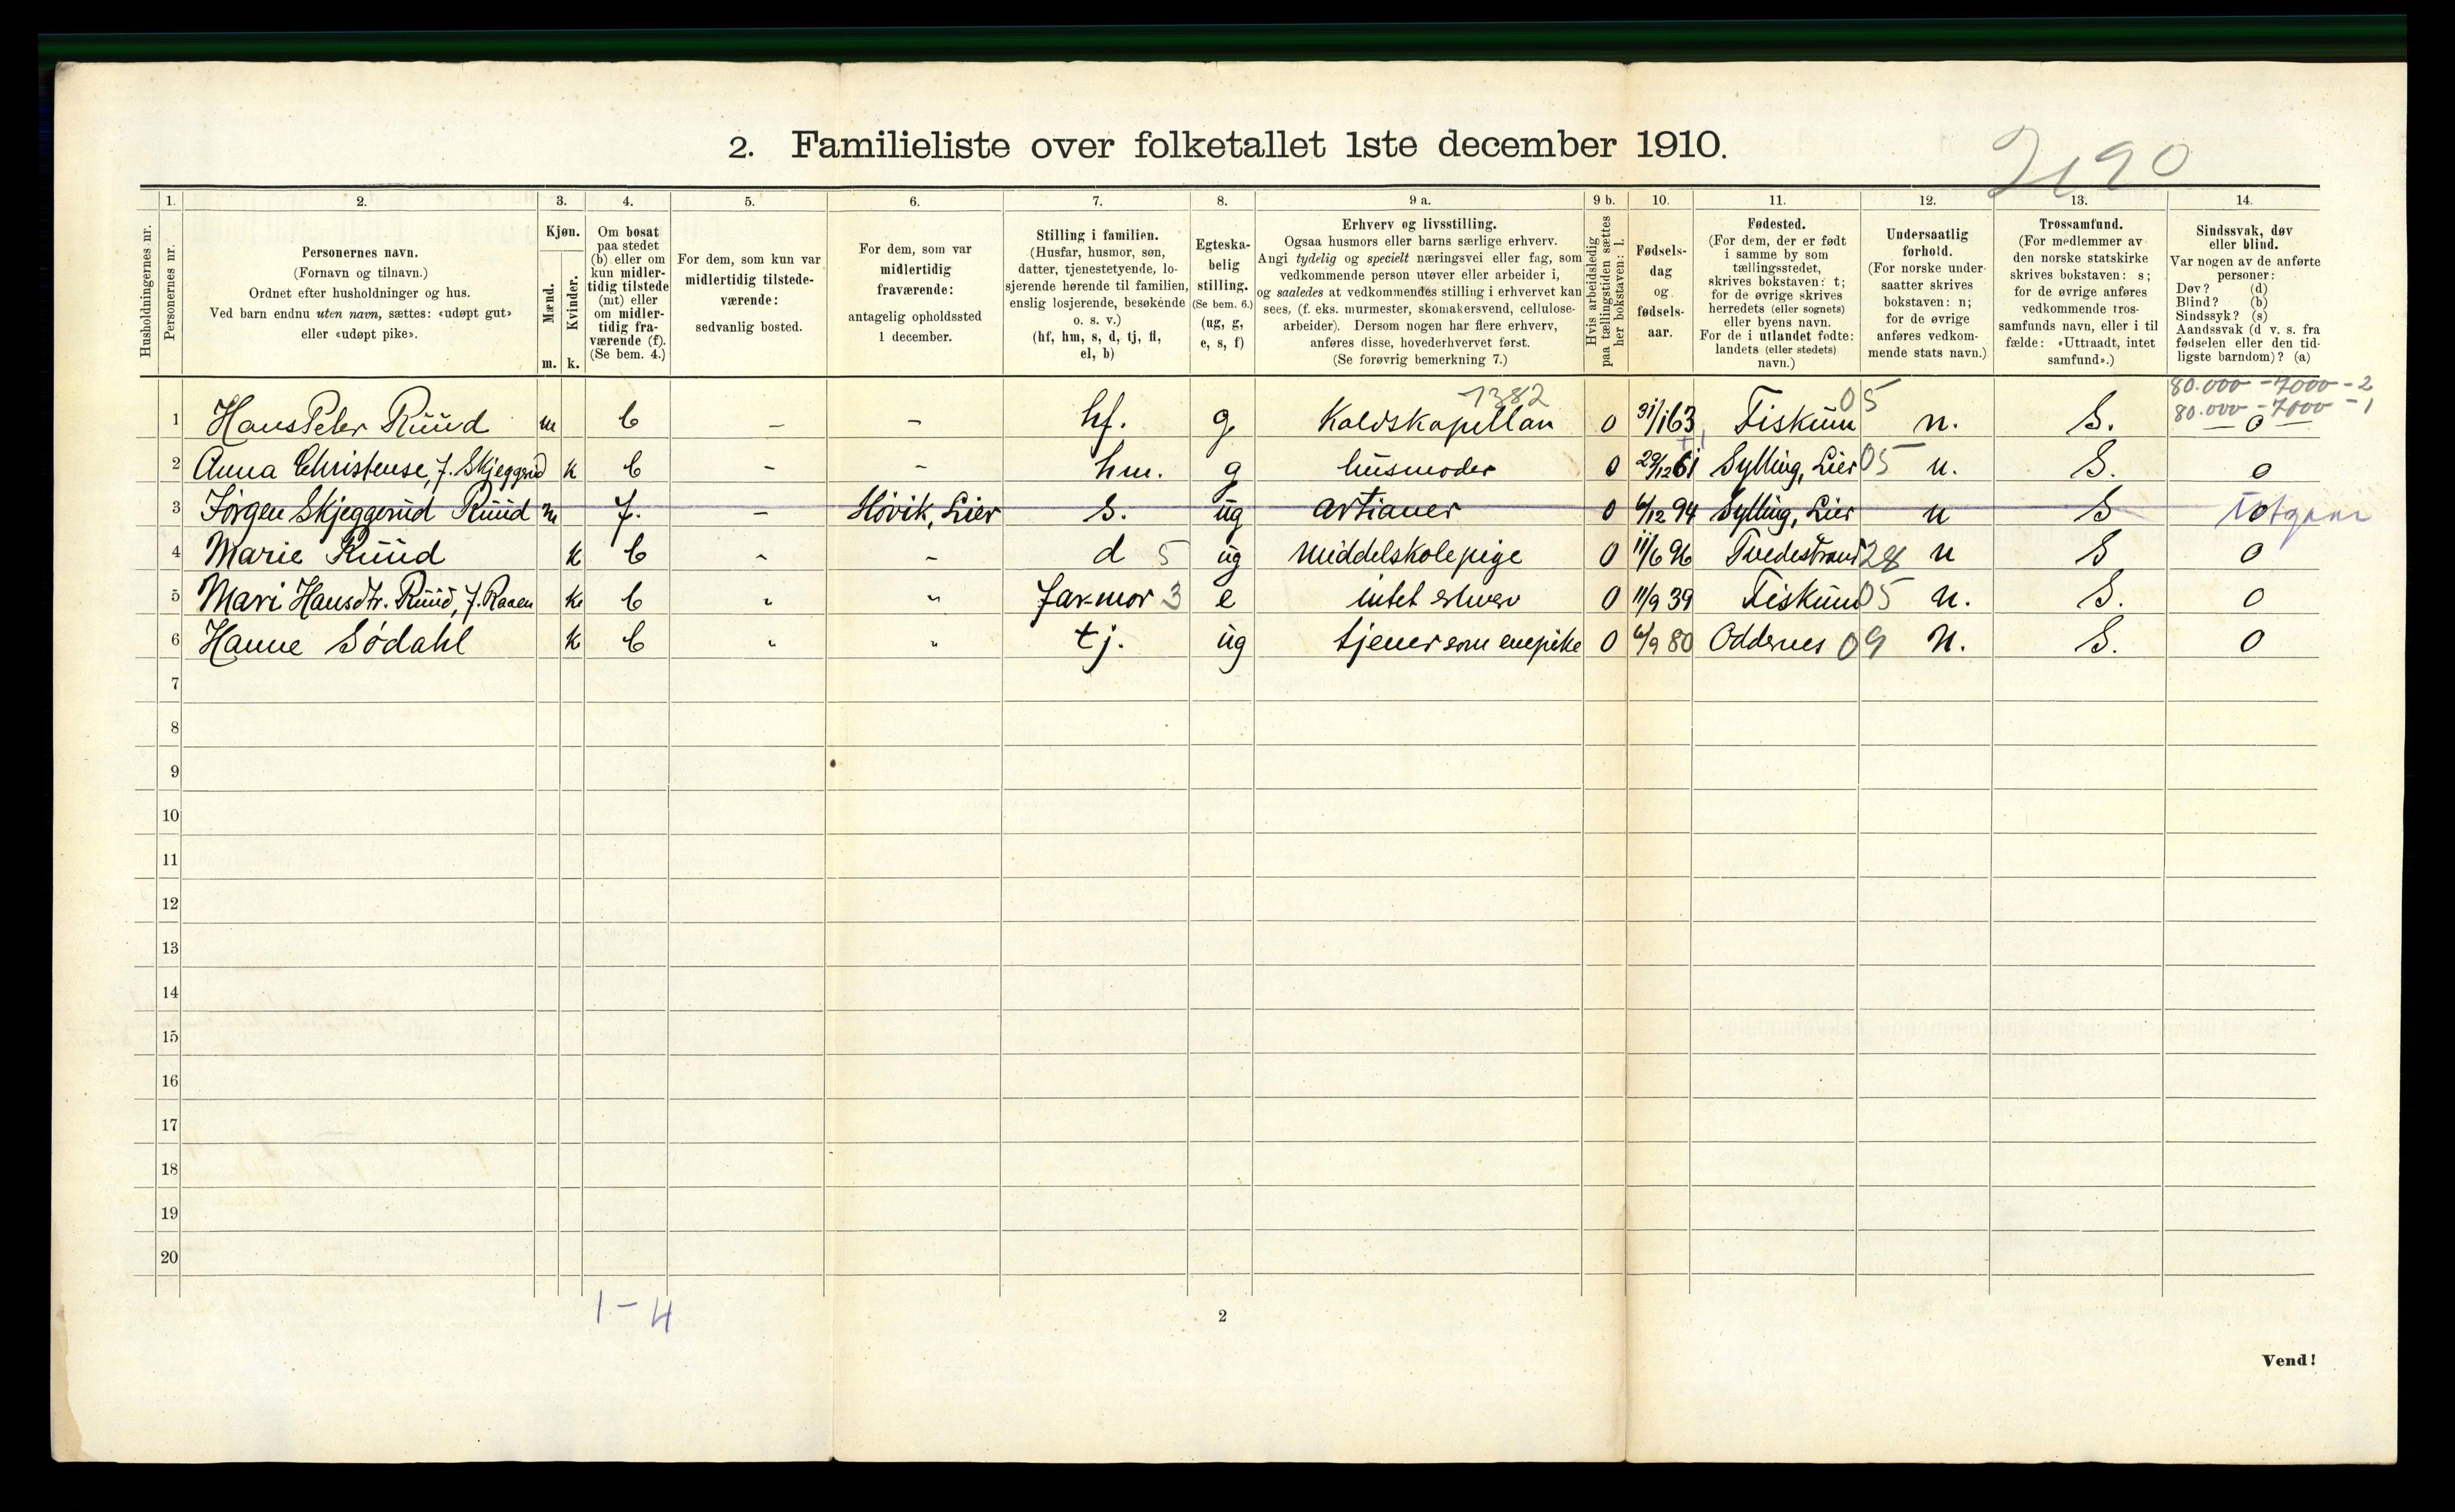 2. Familieliste over folketallet 1ste december 1910.
2190
Husholdningernes nr.
1.
Personernes nr.
2.
Personernes navn.
(Fornavn og tilnavn.)
Ordnet efter husholdninger og hus.
Ved barn endnu uten navn, sættes: «udøpt gut»
eller «udøpt pike».
3.
Kjøn.
Mænd.
m.
Kvinder.
k.
4.
Om bosat
paa stedet
(b) eller om
kun midler-
tidig tilstede
(mt) eller
om midler-
tidig fra-
værende (f).
(Se bem. 4.)
5.
For dem, som kun var
midlertidig tilstede-
værende:
sedvanlig bosted.
6.
For dem, som var
midlertidig
fraværende:
antagelig opholdssted
1 december.
7.
Stilling i familien.
(Husfar, husmor, søn,
datter, tjenestetyende, lo-
sjerende hørende til familien,
enslig losjerende, besøkende
o. s. v.)
(hf, hm, s, d, tj, fl,
el, b)
8.
Egteska-
belig
stilling.
(Se bem. 6.)
(ug, g,
e, s, f)
9 a.
Erhverv og livsstilling.
Ogsaa husmors eller barns særlige erhverv.
Angi tydelig og specielt næringsvei eller fag, som
vedkommende person utøver eller arbeider i,
og saaledes at vedkommendes stilling i erhvervet kan
sees, (f. eks. murmester, skomakersvend, cellulose-
arbeider). Dersom nogen har flere erhverv,
anføres disse, hovederhvervet først.
(Se forøvrig bemerkning 7.)
9 b.
Hvis arbeidsledig
paa tællingstiden sættes
her bokstaven: l.
10.
Fødsels-
dag
og
fødsels-
aar.
11.
Fødested.
(For dem, der er født
i samme by som
tællingsstedet,
skrives bokstaven: t;
for de øvrige skrives
herredets (eller sognets)
eller byens navn.
For de i utlandet fødte:
landets (eller stedets)
navn.)
12.
Undersaatlig
forhold.
(For norske under-
saatter skrives
bokstaven: n;
for de øvrige
anføres vedkom-
mende stats navn.)
13.
Trossamfund.
(For medlemmer av
den norske statskirke
skrives bokstaven: s;
for de øvrige anføres
vedkommende tros-
samfunds navn, eller i til
fælde: «Uttraadt, intet
samfund».)
14.
Sindssvak, døv
eller blind.
Var nogen av de anførte
personer:
Døv? (d)
Blind? (b)
Sindssyk? (s)
Aandssvak (d. v. s. fra
fødselen eller den tid-
ligste barndom)? (a)
1382 80.000 - 7000 - 2
80.000 - 7000 - 1
1 Hans Peter Ruud m b - - hf. g Kaldskapellan 0 31/1 63 Fiskum 05 n. S. 0
2 Anna Christense, f. Skjeggrud k b - - hm. g husmoder 0 29/12 61 Sylling, Lier 05 n. S. 0
3 Jörgen Skjeggerud Ruud m f. - Hövik, Lier s. ug artianer 0 6/12 94 Sylling, Lier n S
4 Marie Ruud k b - - d 5 ug Middelskolepige 0 11/6 96 Tvedestrand 28 n S 0
5 Mari Hansdtr. Ruud, f. Raaen k b " " far-mor 3 e intet erhverv 0 11/9 39 Fiskum 05 n. S. 0
6 Hanne Södahl k b " " tj. ug tjener som enepike 0 6/9 80 Oddernes 09 n. S. 0
7
8
9
10
11
12
13
14
15
16
17
18
19
20
1 - 4
2
Vend!